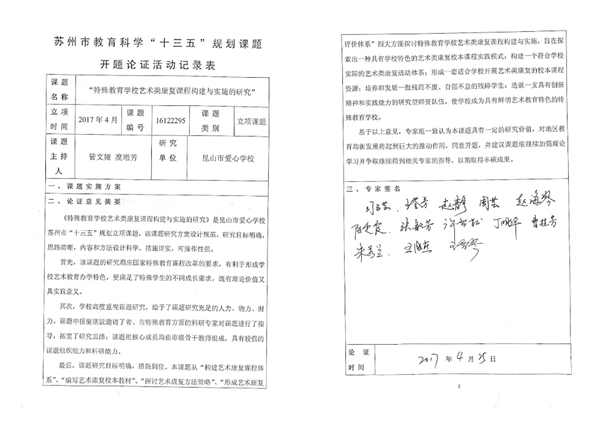 苏州市教育科学“十三五”规划课题
开题论证活动记录表
课题名称 “特殊教育学校艺术类康复课程构建与实施的研究”
立项时间 2017年4月 课题编号 16122295 课题类别 立项课题
课题主持人 管文娅 庹增芳 研究单位 昆山市爱心学校
一、课题实施方案
二、论证意见简要
《特殊教育学校艺术类康复课程构建与实施的研究》是昆山市爱心学校
苏州市“十三五”规划立项课题，该课题研究方案设计规范，研究目标明确，
思路清晰，内容和方法设计科学，措施详实，可操作性强。
首先，该课题的研究顺应国家特殊教育课程改革的要求，有利于形成学
校艺术教育办学特色，更满足了特殊学生的不同成长需求，既有理论价值又
具实践意义。
其次，学校高度重视课题研究，给予了课题研究充足的人力、物力、财
力，课题申报前期以邀请了省、市特殊教育方面的科研专家对课题进行了指
导，拓宽了研究思路；课题组核心成员均由市级骨干教师组成，具有较强的
课题组织能力和科研能力。
最后，课题研究目标明确，措施到位，本课题从“构建艺术康复课程体
系”、“编写艺术康复校本教材”、“探讨艺术康复方法策略”、“形成艺术康复
评价体系”四大方面探讨特殊教育学校艺术类康复课程构建与实施，旨在探
索出一种具有学校特色的艺术类康复校本课程实践模式；构建一个符合学校
实际的艺术类康复活动体系；形成一套适合学校开展艺术类康复的校本课程
资源；培养和发展一批残而不废、自强不息的残障学生；造就一支具有创新
精神和实践能力的研究型师资队伍，使学校成为具有鲜明艺术教育特色的特
殊教育学校。
基于以上意见，专家组一致认为本课题具有一定的研究价值，对地区教
育均衡发展将起到巨大的推动作用，同意开题，并建议课题组继续加强理论
学习并争取继续得到相关专家的指导，以期取得丰硕成果。
三、专家签名
周芸 赵海琴
张敏芳 丁晓平 曹桂芳
论证时间 2017年4月25日